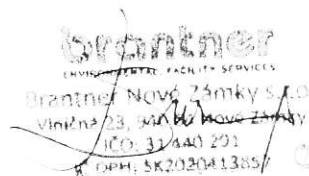 brantner
ENVIRONMENTAL, FACILITY SERVICES
Brantner Nové Zámky s.r.o.
Viničná 23, 940 Nové Zámky
IČO: 31 440 291
DPH: SK2020413857